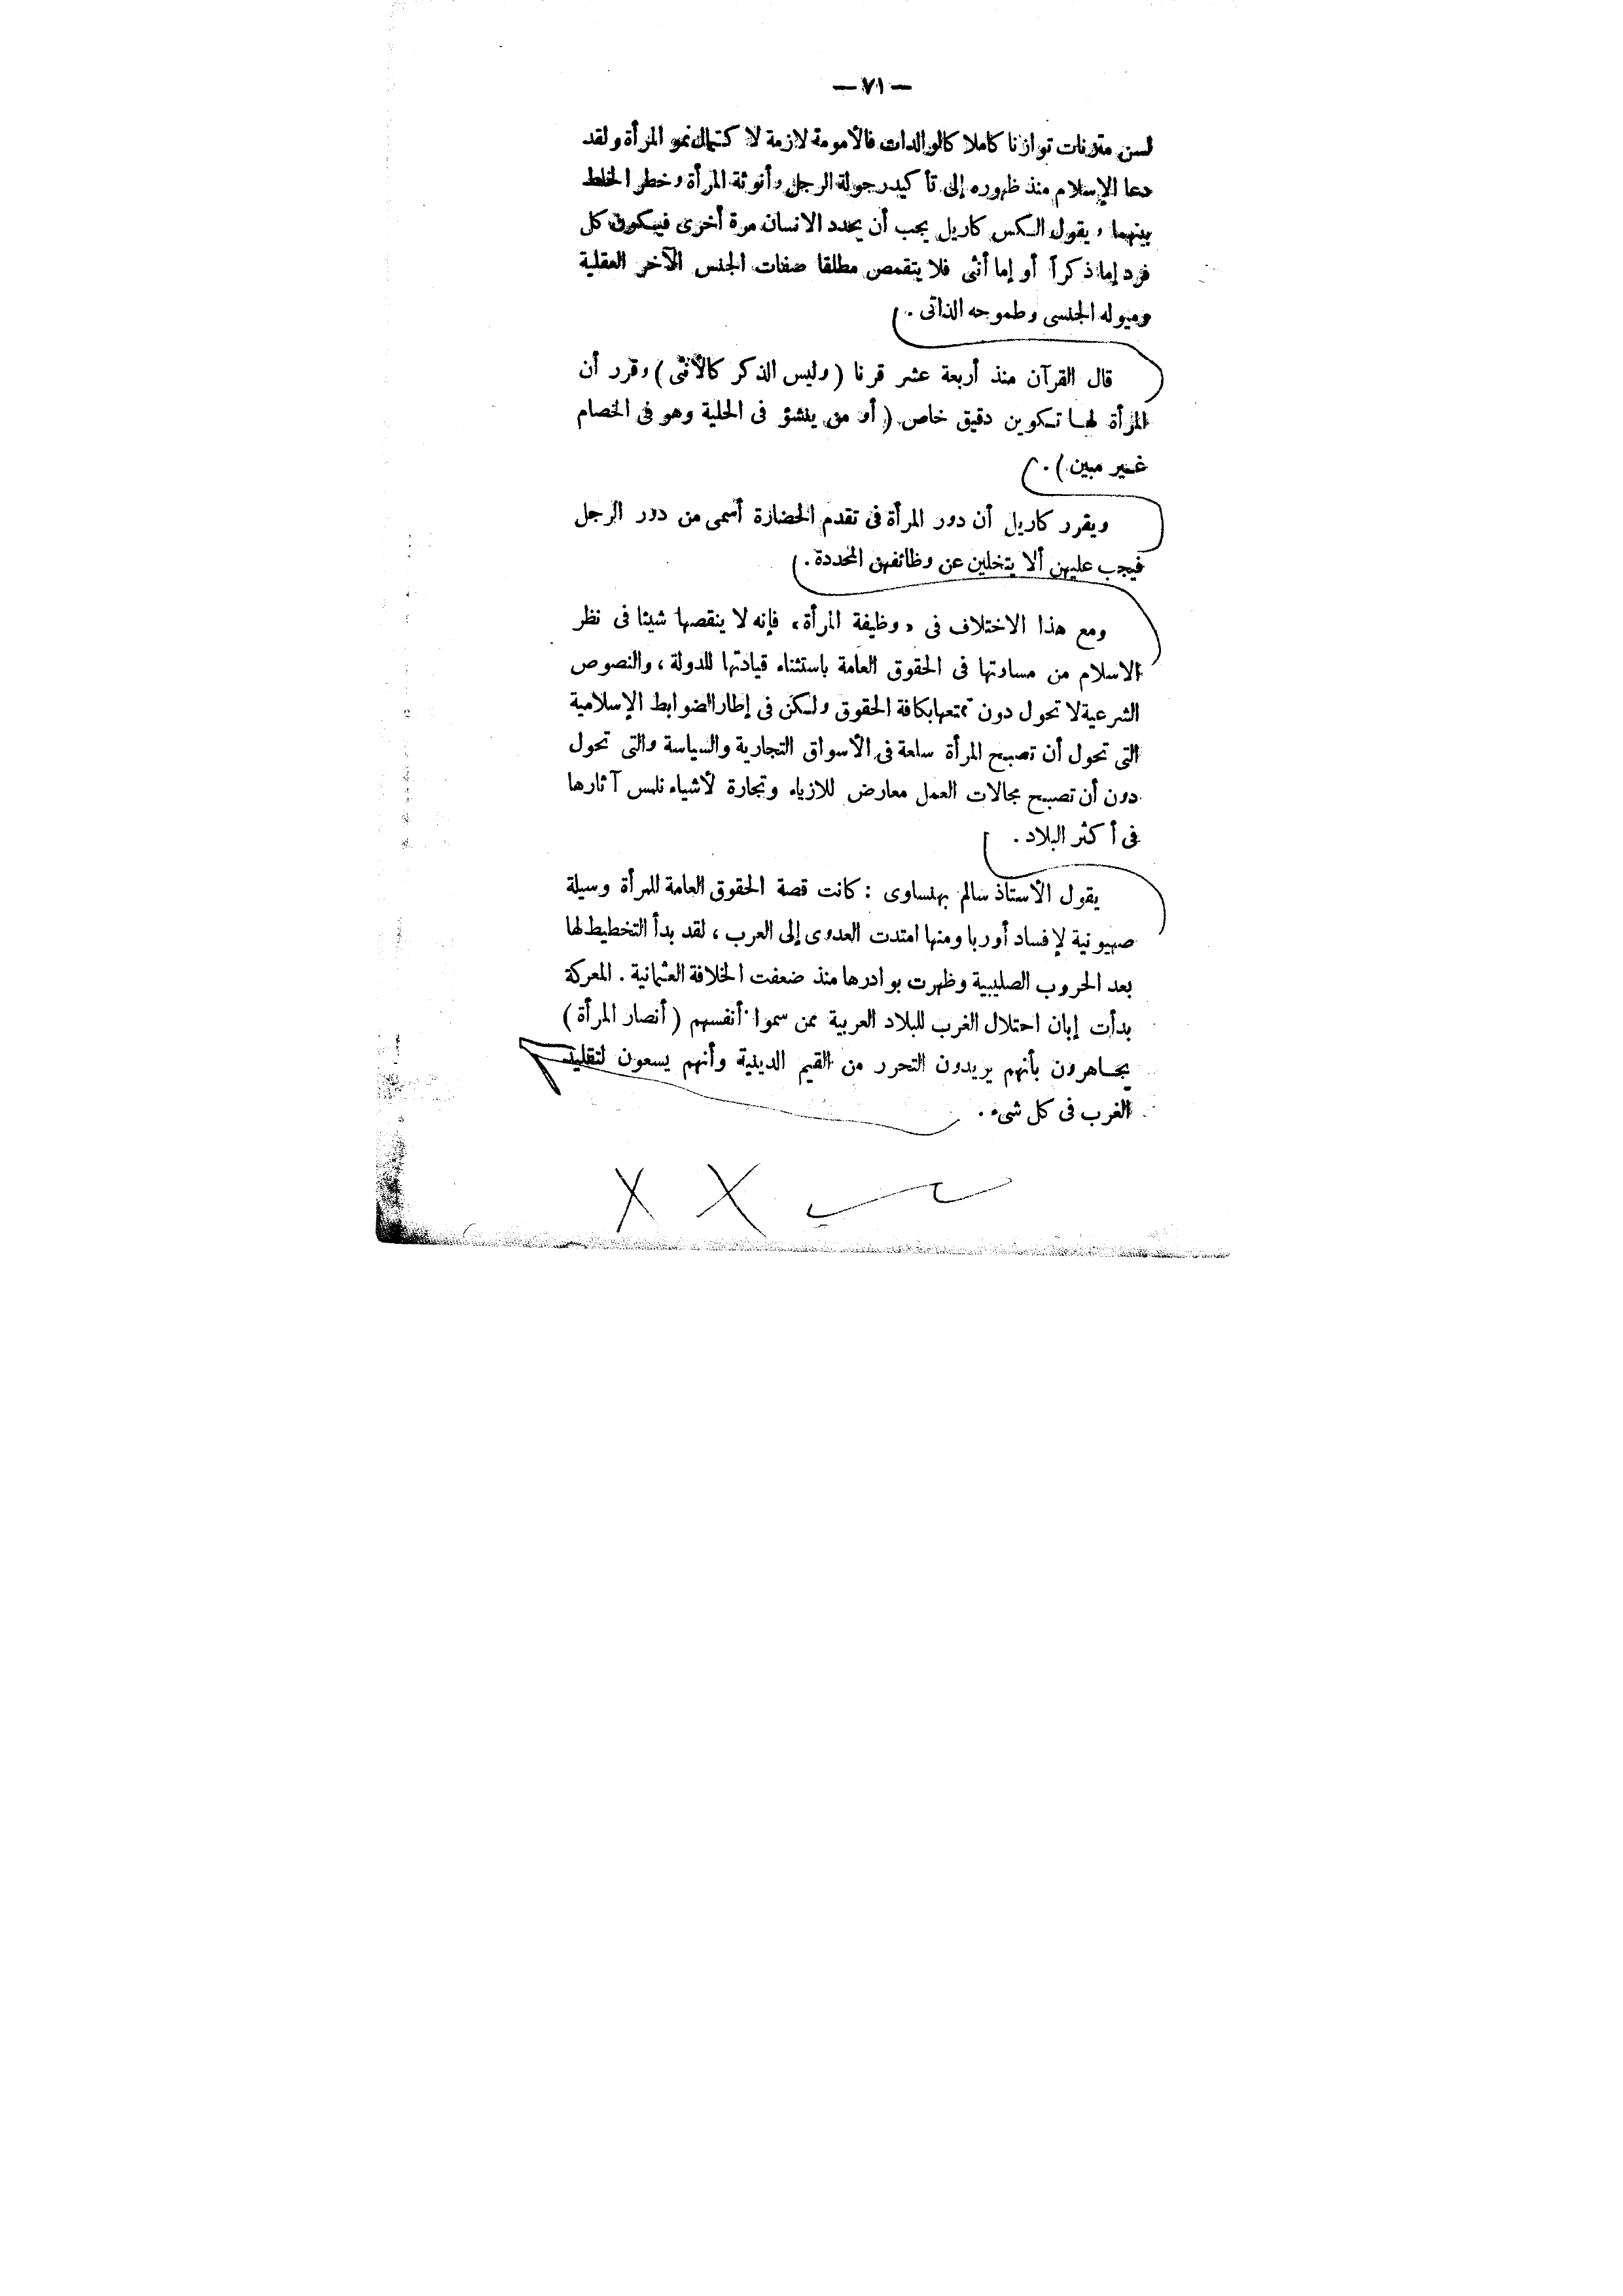 — ٧١ —
لسن متزنات توازنا كاملا كالوالدات فالأمومة لازمة لاكتمال نمو المرأة ولقد
دعا الإسلام منذ ظهوره إلى تأكيد رجولة الرجل وأنوثة المرأة وخطر الخلط
بينهما ويقول الكس كاريل يجب أن يحدد الانسان مرة أخرى فيكون كل
فرد إما ذكراً أو إما أنثى فلا يتقمص مطلقا صفات الجنس الآخر العقلية
وميوله الجنسى وطموحه الذاتى .
قال القرآن منذ أربعة عشر قرنا ( وليس الذكر كالأنثى ) وقرر أن
المرأة لها تكوين دقيق خاص ( أو من ينشؤ فى الحلية وهو فى الخصام
غير مبين ) .
ويقرر كاريل أن دور المرأة فى تقدم الحضارة أسمى من دور الرجل
فيجب عليهن ألا يتخلين عن وظائفهن المحددة .
ومع هذا الاختلاف فى « وظيفة المرأة » فإنه لا ينقصها شيئا فى نظر
الاسلام من مساوتها فى الحقوق العامة باستثناء قيادتها للدولة ، والنصوص
الشرعية لا تحول دون تمتعها بكافة الحقوق ولكن فى إطار الضوابط الإسلامية
التى تحول أن تصبح المرأة سلعة فى الأسواق التجارية والسياسة والتى تحول
دون أن تصبح مجالات العمل معارض للازياء وتجارة لأشياء نلمس آثارها
فى أكثر البلاد .
يقول الأستاذ سالم بهنساوى : كانت قصة الحقوق العامة للمرأة وسيلة
صهيونية لإفساد أوربا ومنها امتدت العدوى إلى العرب ، لقد بدأ التخطيط لها
بعد الحروب الصليبية وظهرت بوادرها منذ ضعفت الخلافة العثمانية . المعركة
بدأت إبان احتلال الغرب للبلاد العربية ممن سموا أنفسهم ( أنصار المرأة )
يجاهرون بأنهم يريدون التحرر من القيم الدينية وأنهم يسعون لتقليد
الغرب فى كل شىء .